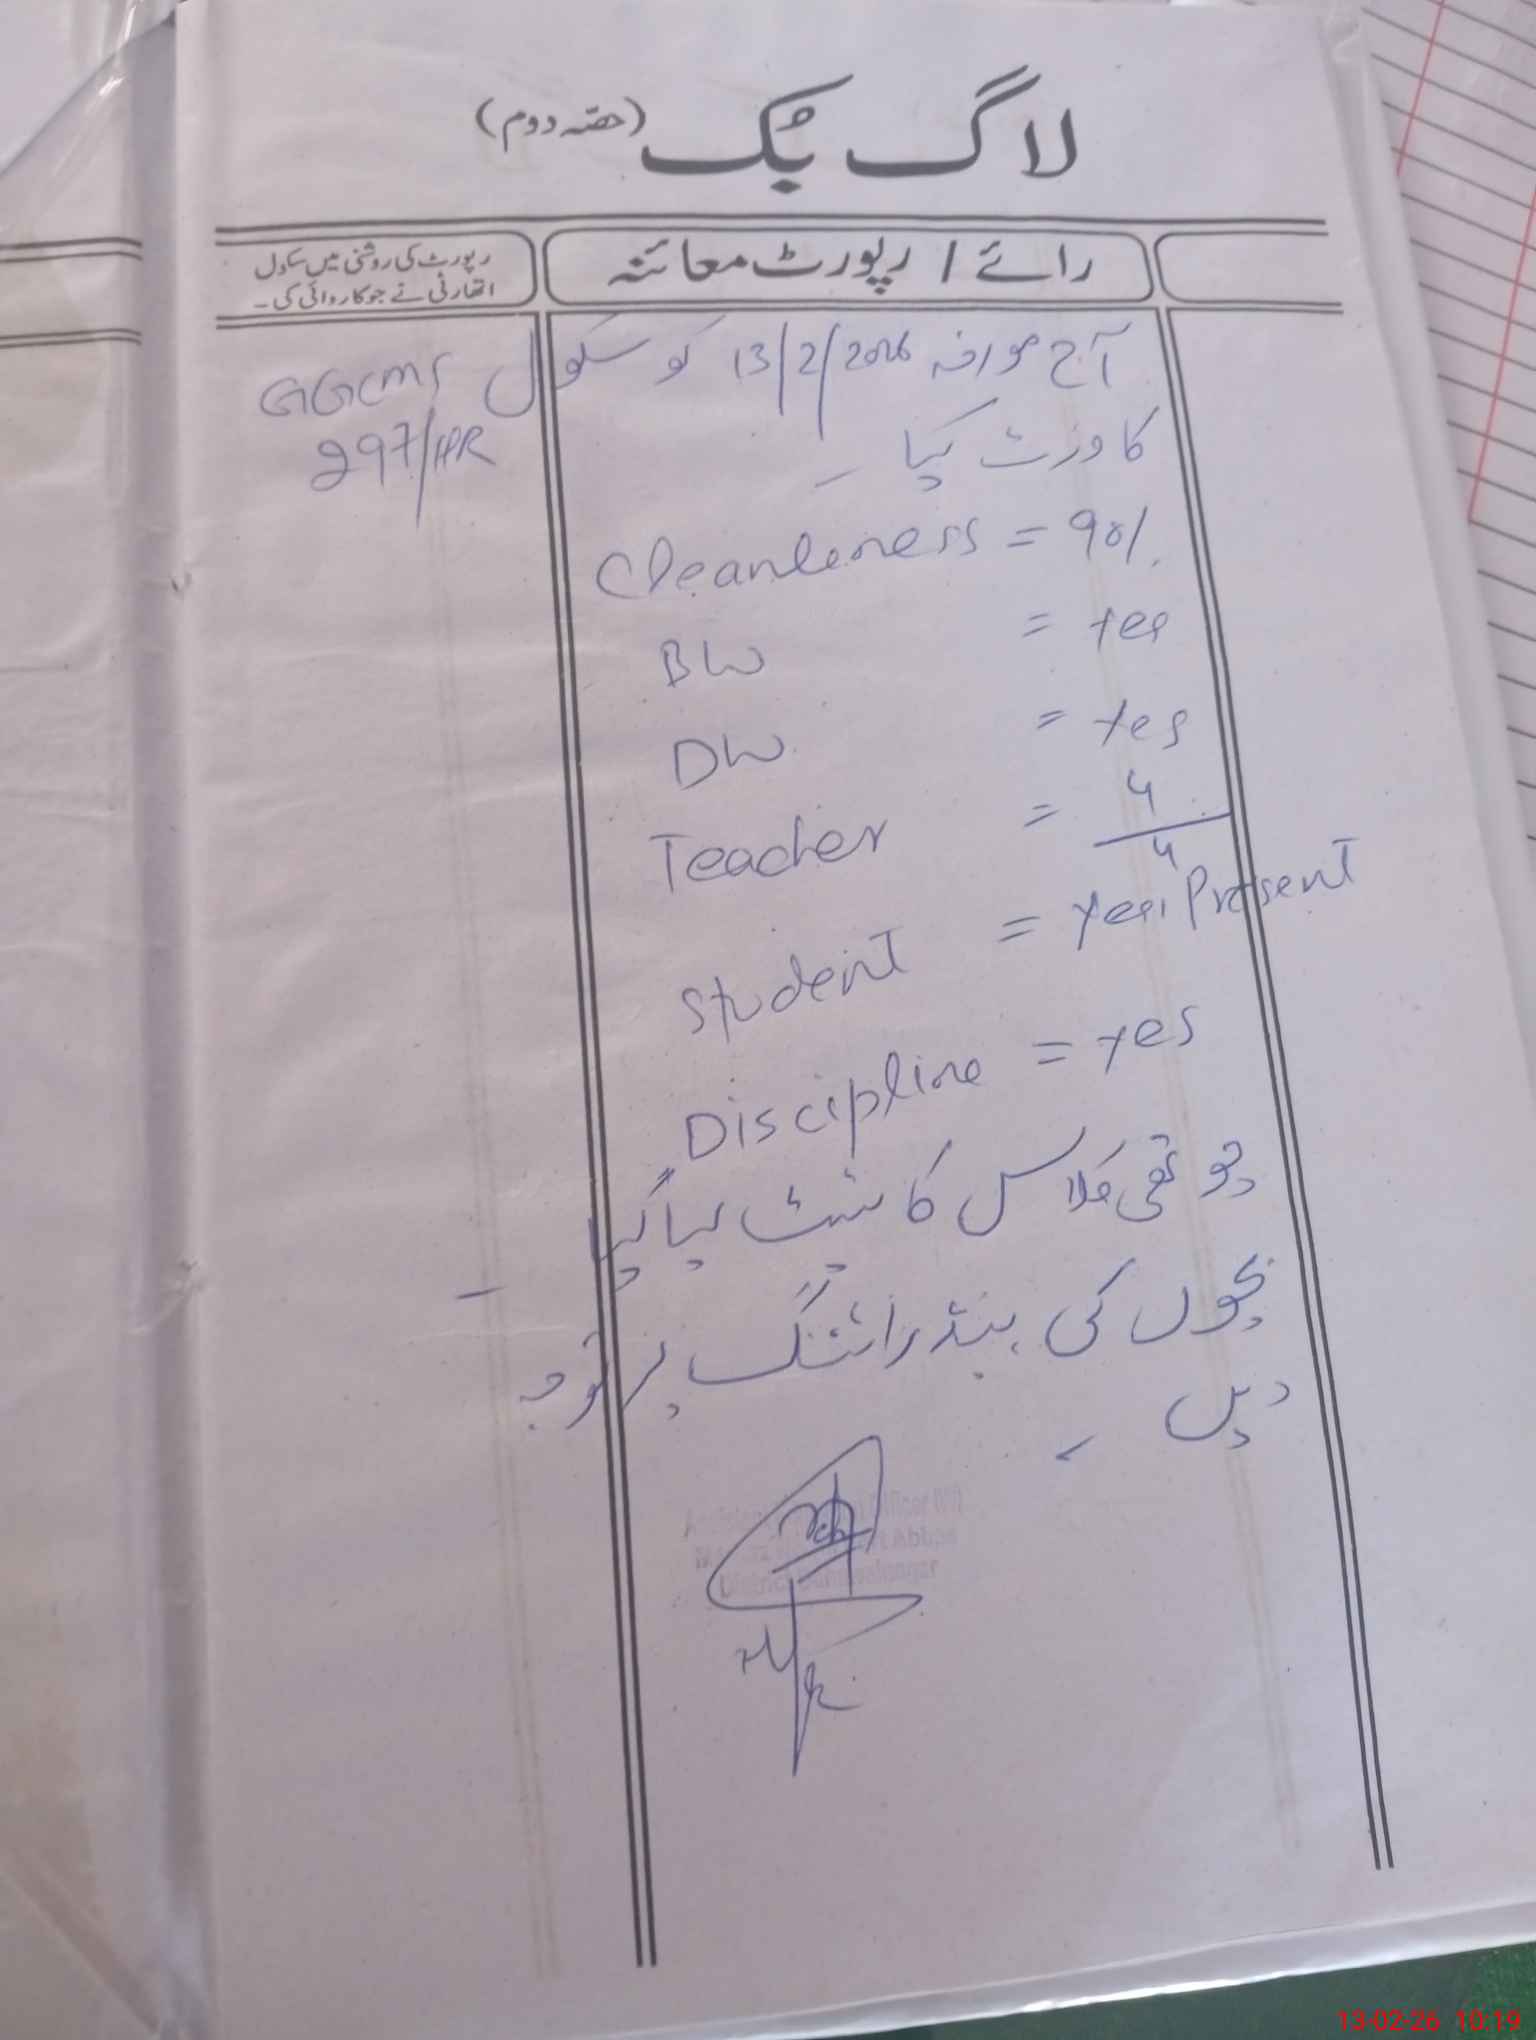 لاگ بُک (حصّہ دوم)
رائے / رپورٹ معائنہ
رپورٹ کی روشنی میں سکول
اتھارٹی نے جو کاروائی کی۔
آج مورخہ 13/2/2026 کو سکول GGCMS
297/HR
کا وزٹ کیا ۔
Cleanleness = 90%.
BW = yes
DW = yes
Teacher = 4/4
Student = yes, Present
Discipline = yes
چوتھی کلاس کا ٹیسٹ لیا گیا ۔
بچوں کی ہینڈ رائٹنگ پر توجہ
دیں ۔
District Bahawalnagar
13-02-26 10:19